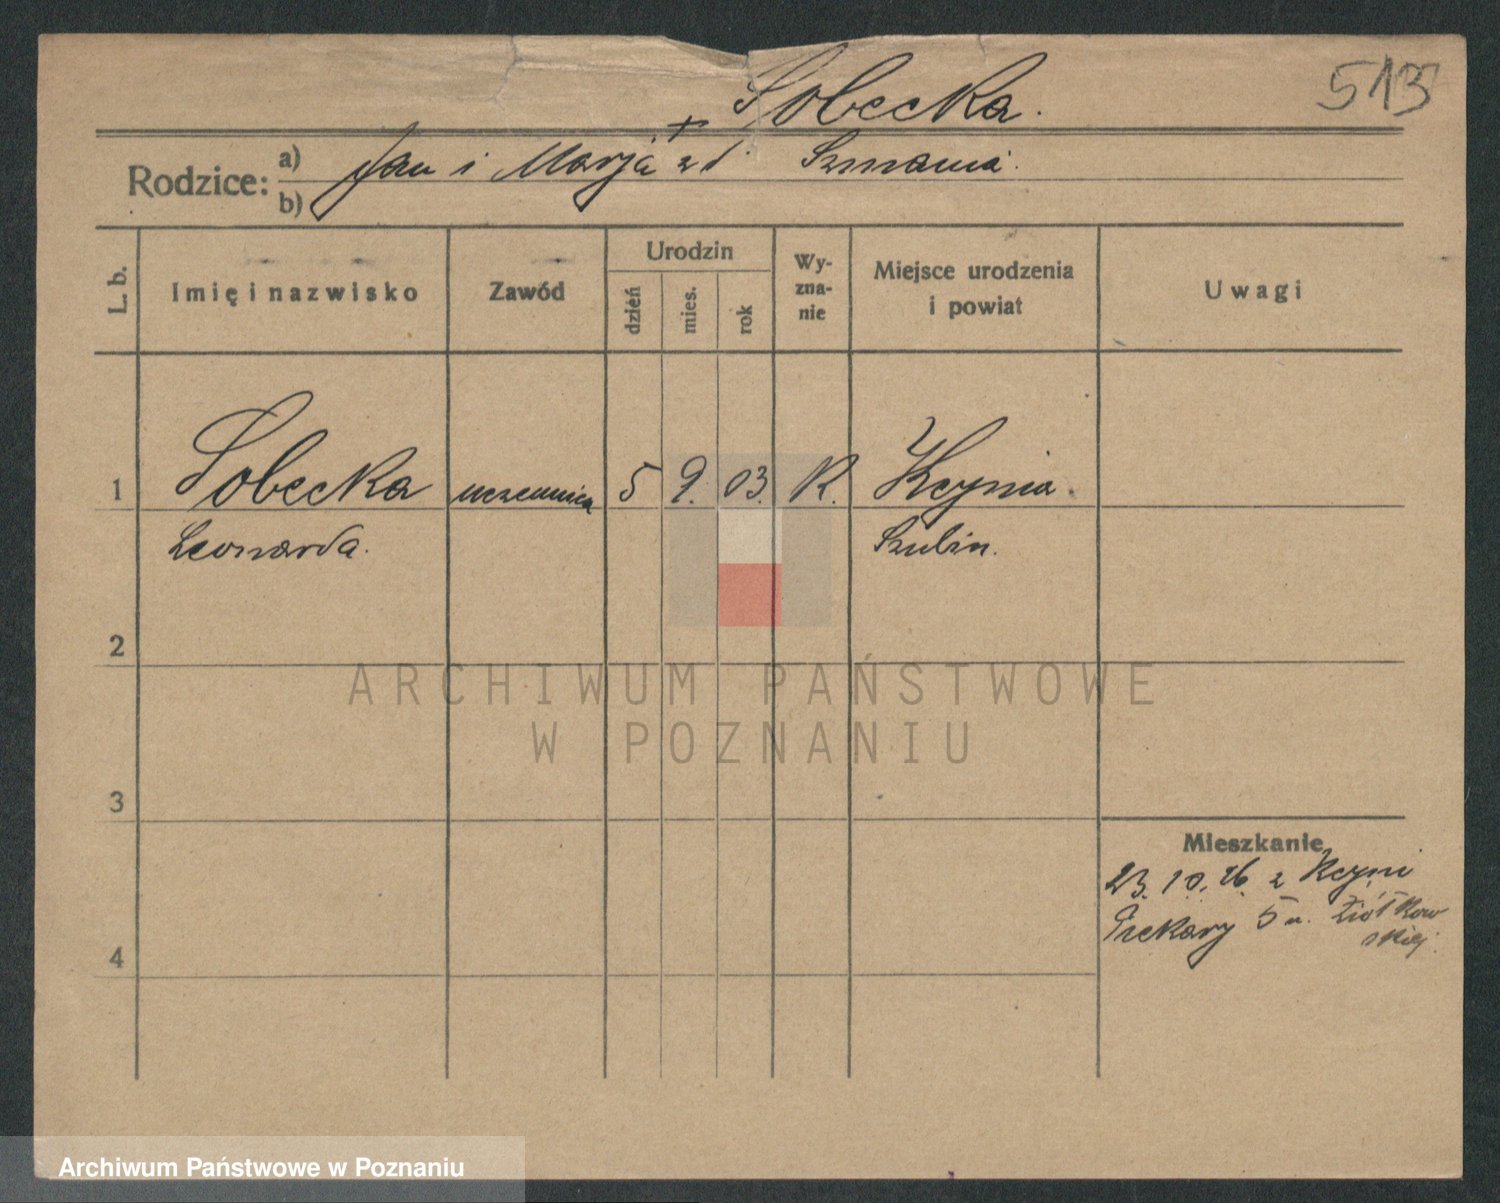 513
Sobecka.
Rodzice: a) Jan i Marja z d. Szmania.
b)
L. b.
Imię i nazwisko
Zawód
Urodzin
dzień
mies.
rok
Wy-
zna-
nie
Miejsce urodzenia
i powiat
Uwagi
1 Sobecka uczennica 5 9. 03. R. Kcynia.
Leonarda. Szubin.
2
ARCHIWUM PAŃSTWOWE
W POZNANIU
3
Mieszkanie
23. 10. 26 z Kcyni
Piekary 5 u. Ziółkow
skiej.
4
Archiwum Państwowe w Poznaniu